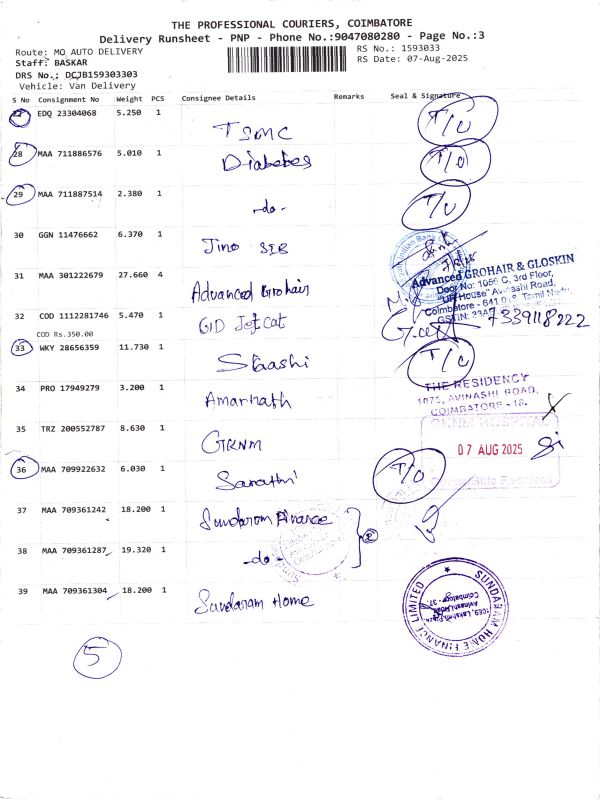 THE PROFESSIONAL COURIERS, COIMBATORE
Delivery Runsheet - PNP - Phone No.:9047080280 - Page No.:3
Route: MO AUTO DELIVERY
Staff: BASKAR
DRS No.: DCJB159303303
Vehicle: Van Delivery
RS No.: 1593033
RS Date: 07-Aug-2025
S No Consignment No Weight PCS Consignee Details Remarks Seal & Signature
27 EDQ 23304068 5.250 1 TSMC T/O
28 MAA 711886576 5.010 1 Diabetes T/O
29 MAA 711887514 2.380 1 -do- T/O
30 GGN 11476662 6.370 1 Jino SIB
31 MAA 301222679 27.660 4 Advanced Grohair
Advanced GROHAIR & GLOSKIN
Door No: 1056 C, 3rd Floor,
Avinashi Road,
Coimbatore - 641 0 8, Tamil Nadu
GSTIN: 33A
32 COD 1112281746 5.470 1 GID Jetcat 7339118222
COD Rs.350.00
33 WKY 28656359 11.730 1 Shashi T/O
34 PRO 17949279 3.200 1 Amarnath
THE RESIDENCY
1075, AVINASHI ROAD,
COIMBATORE - 18.
35 TRZ 200552787 8.630 1 GKNM
GKNM HOSPITAL
07 AUG 2025
36 MAA 709922632 6.030 1 Sarathi T/O
37 MAA 709361242 18.200 1 Sundaram Finance
2
38 MAA 709361287 19.320 1 -do-
39 MAA 709361304 18.200 1 Sundaram Home
SUNDARAM HOME FINANCE LIMITED
Avinashi Road
Coimbatore - 37.
5